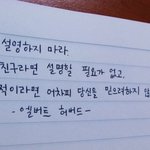 설명하지 마라.
친구라면 설명할 필요가 없고,
적이라면 어차피 당신을 믿으려하지 않
- 엘버트 허버드 -